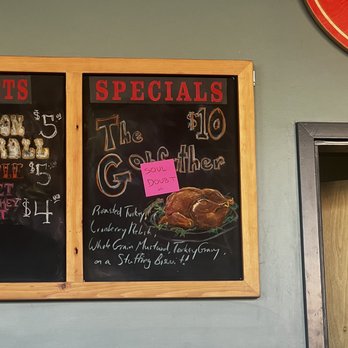 TS
$5
$5
$4
SPECIALS
The $10
SOUL
DOUBT
Roasted Turkey,
Cranberry Relish,
Whole Grain Mustard, Turkey Gravy,
on a Stuffing Biscuit!